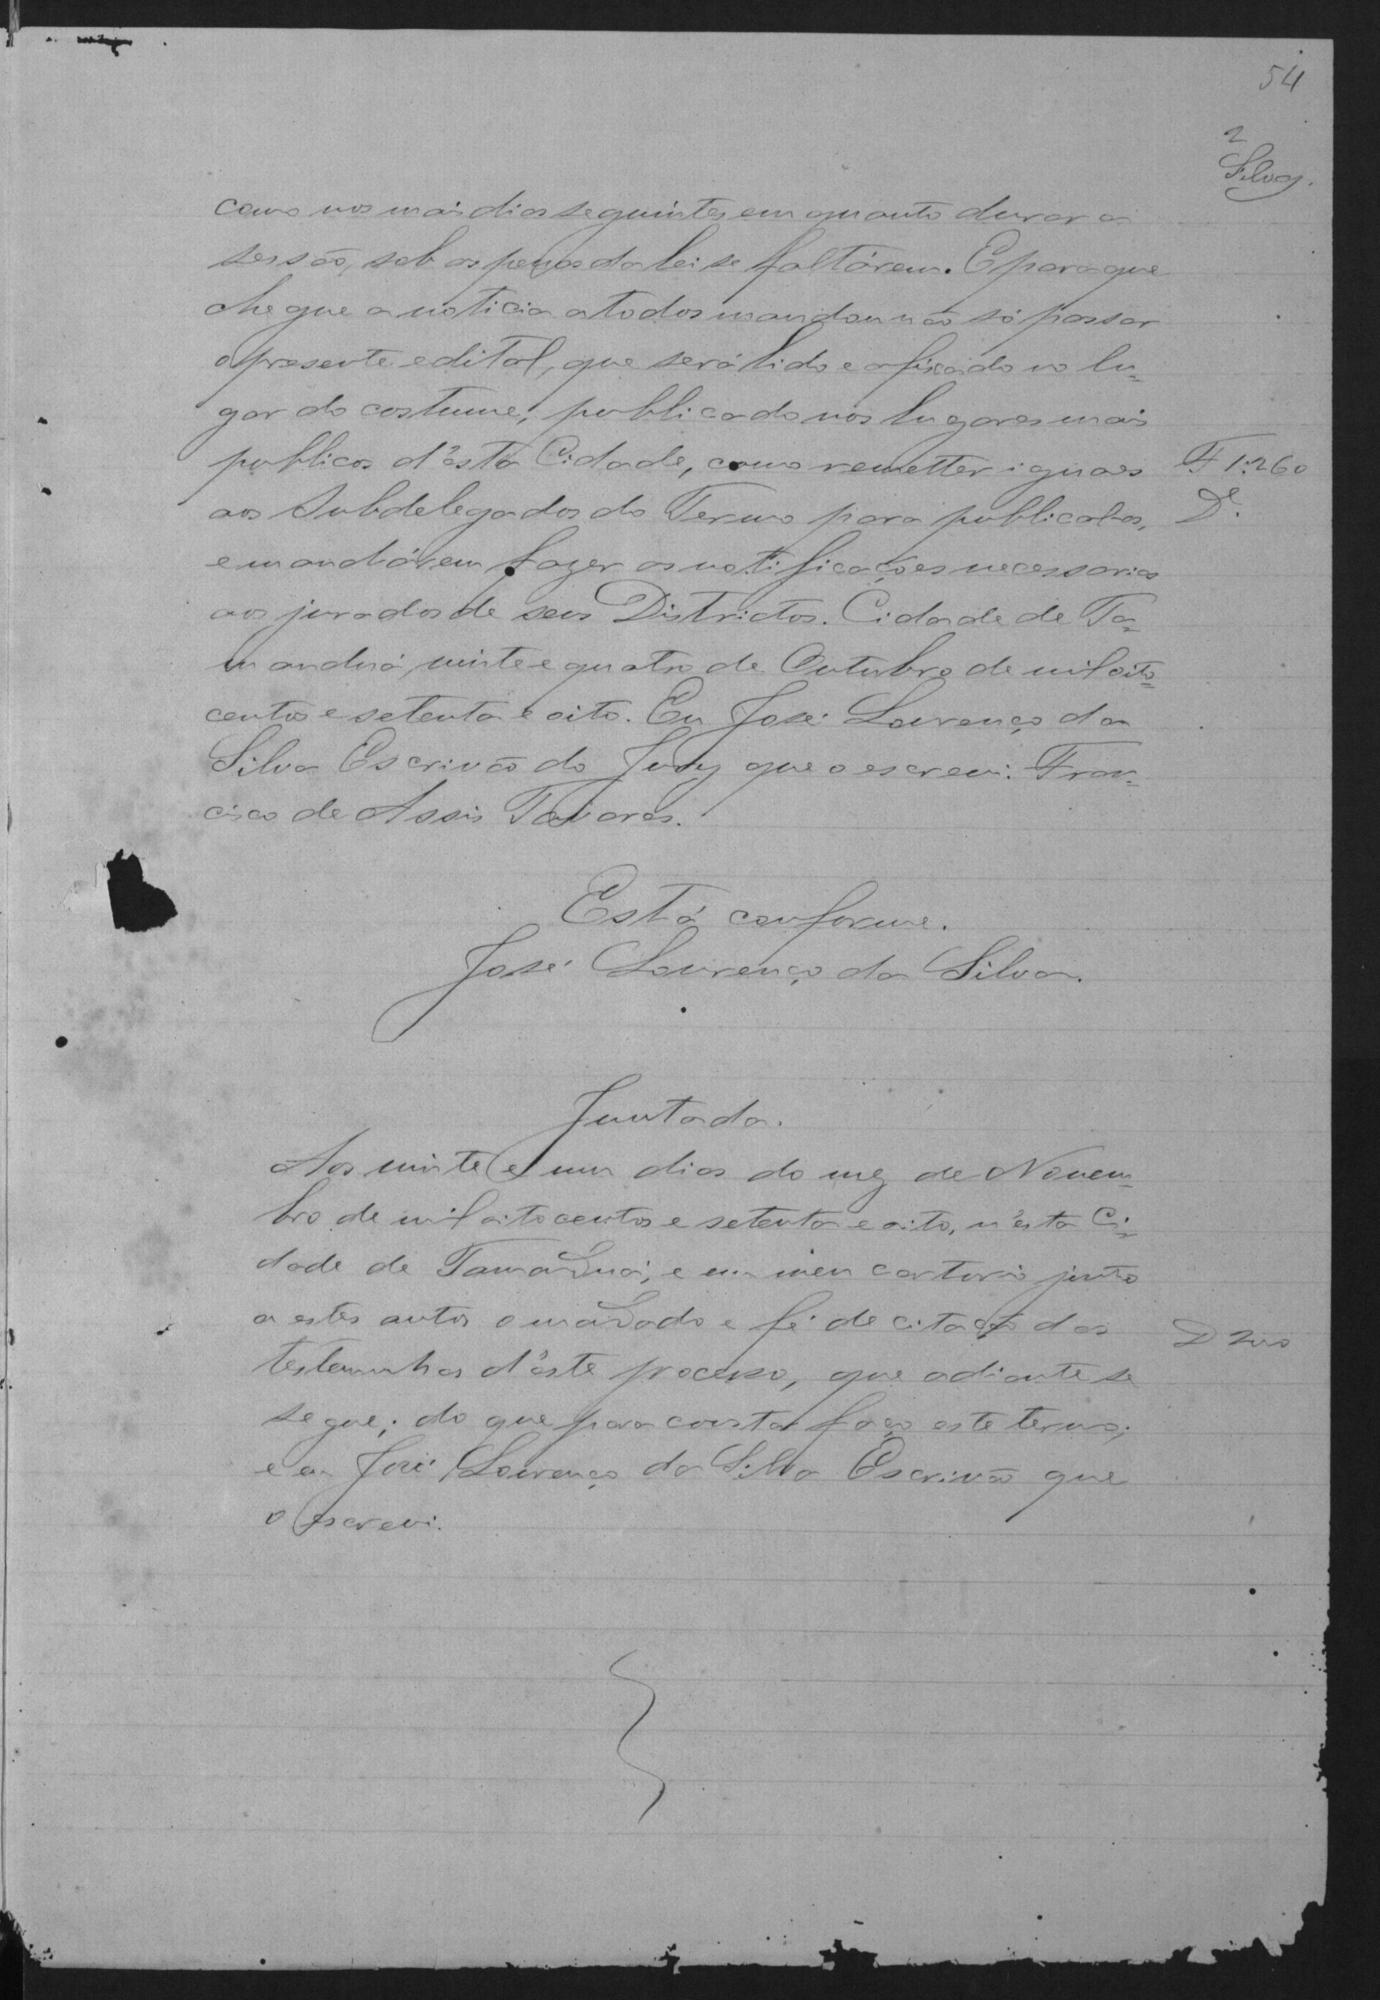 54
2
Silva.
como nos mais dias seguintes em quanto durar a
sessão, sob as penas da lei se faltárem. E para que
chegue a noticia a todos mandou não só passar
o presente edital, que será lido e afixado no lu=
gar do costume, publicado nos lugares mais
publicos d'ésta Cidade, como remetter iguaes
F 1:260
aos Subdelegados do Termo para publical-os,
Dê.
e mandárem fazer as notificações necessarias
aos jurados de seus Districtos. Cidade de Ta=
manduá, vinte e quatro de Outubro de mil oito=
centos e setenta e oito. Eu José Lourenço da
Silva Escrivão do Jury que o escrevi. Fran=
cisco de Assis Tavares.
Está conforme.
José Lourenço da Silva.
Juntada.
Aos vinte e um dias do mez de Novem=
bro de mil oitocentos e setenta e oito, n'ésta Ci=
dade de Tamanduá, e em meu cartorio junto
a estes autos o mandado e fé de citação das
D 200
testemunhas d'éste processo, que adiante se
segue; do que para constar faço este termo;
e eu José Lourenço da Silva Escrivão que
o escrevi.